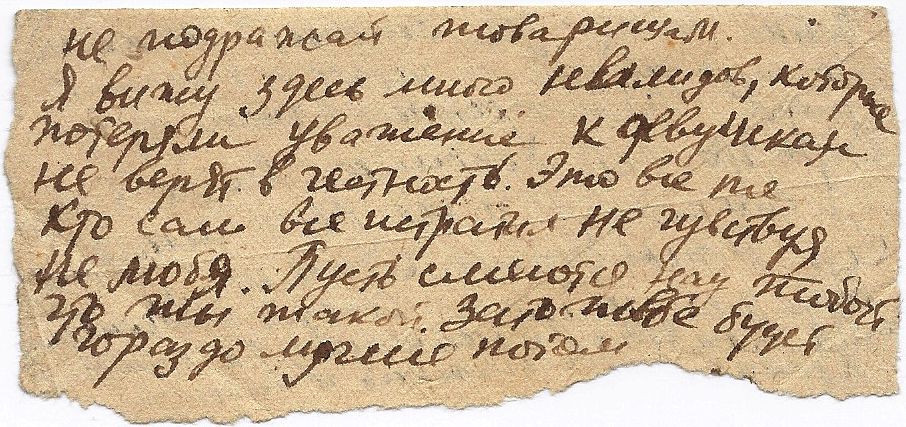 не подражай товарищам.
Я вижу здесь много нвалидов, которые
потеряли уважение к девушкам
не верят в честность. Это все те
кто сам все истратил не чувствуя
не любя. Пусть смеются над тобой
что ты такой. Зато тебе будет
гораздо лучше потом